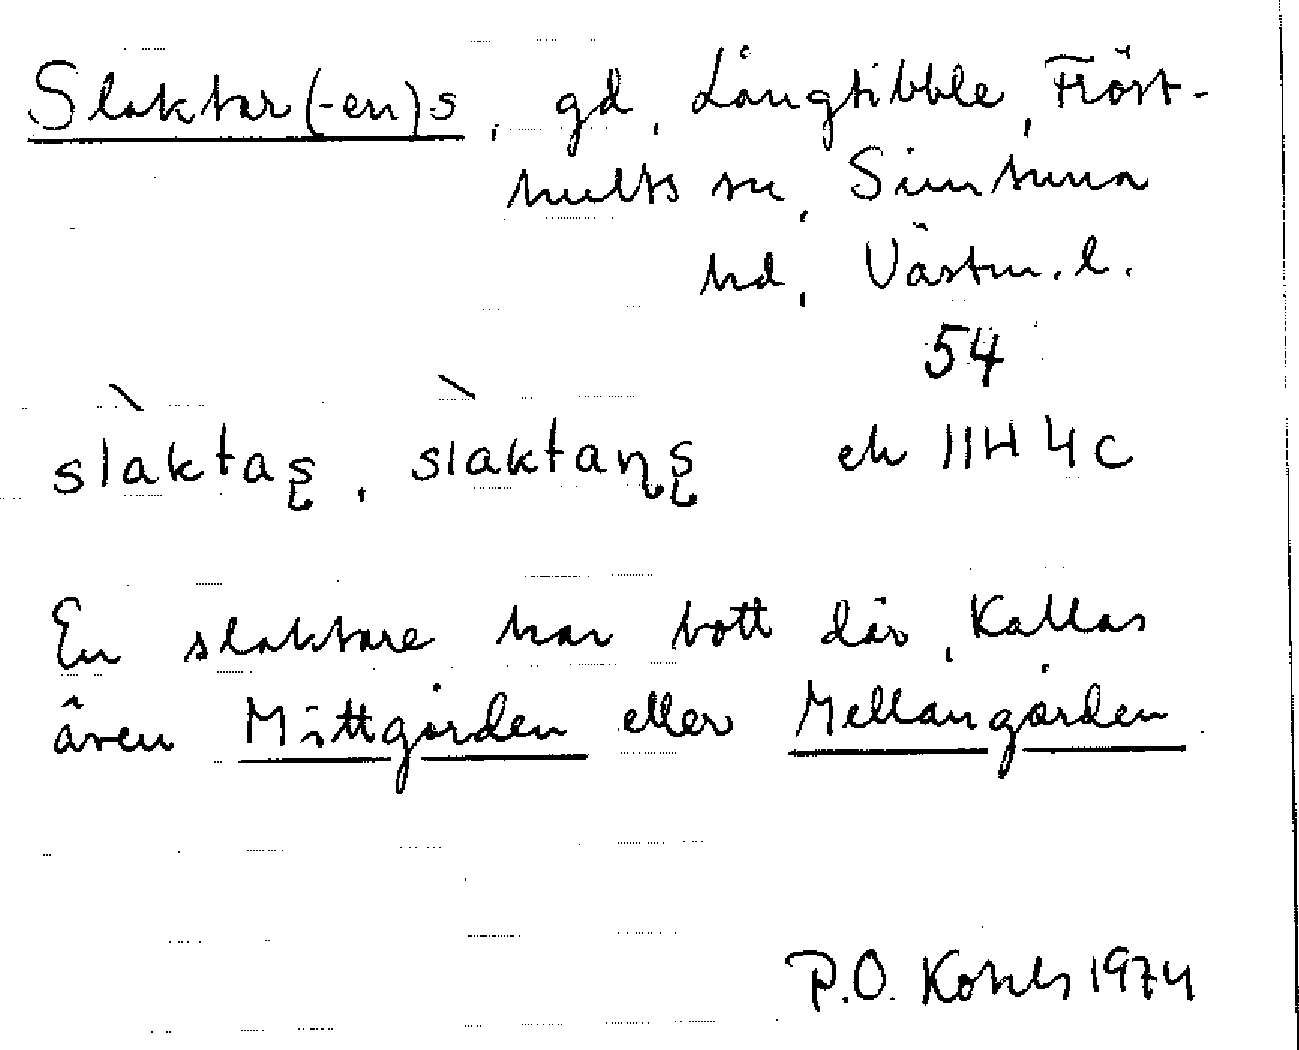 Slaktar(-en)s, gd, Långtibble, Fröst-
hults sn, Simtuna
hd, Västm. l.
54
slàktaş, slàktaņş ek 11H 4c
En slaktare har bott där, Kallas
även Mittgården eller Mellangården
P.O. 1974